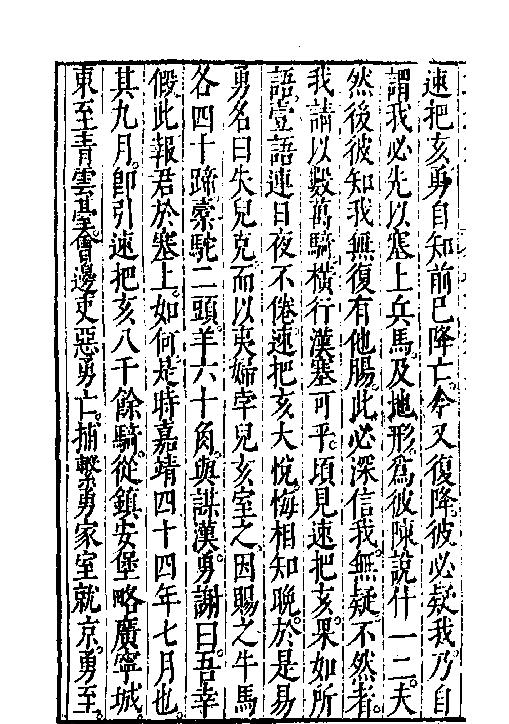 速把亥勇自知前已降亡今又復降彼必疑我乃自
謂我必先以塞上兵馬及地形爲彼陳說什一二夫
然後彼知我無復有他腸此必深信我無疑不然者
我請以數萬騎橫行漢塞可乎頃見速把亥果如所
語壹語連日夜不倦速把亥大悅悔相知晚於是易
勇名曰失兒克而以夷婦孛兒亥室之因賜之牛馬
各四十蹄橐駝二頭羊六十角與謀漢勇謝曰吾幸
假此報君於塞上如何是時嘉靖四十四年七月也
其九月卽引速把亥八千餘騎從鎮安堡略廣寧城
東至青雲臺會邊吏惡勇亡捕繫勇家室就京勇至